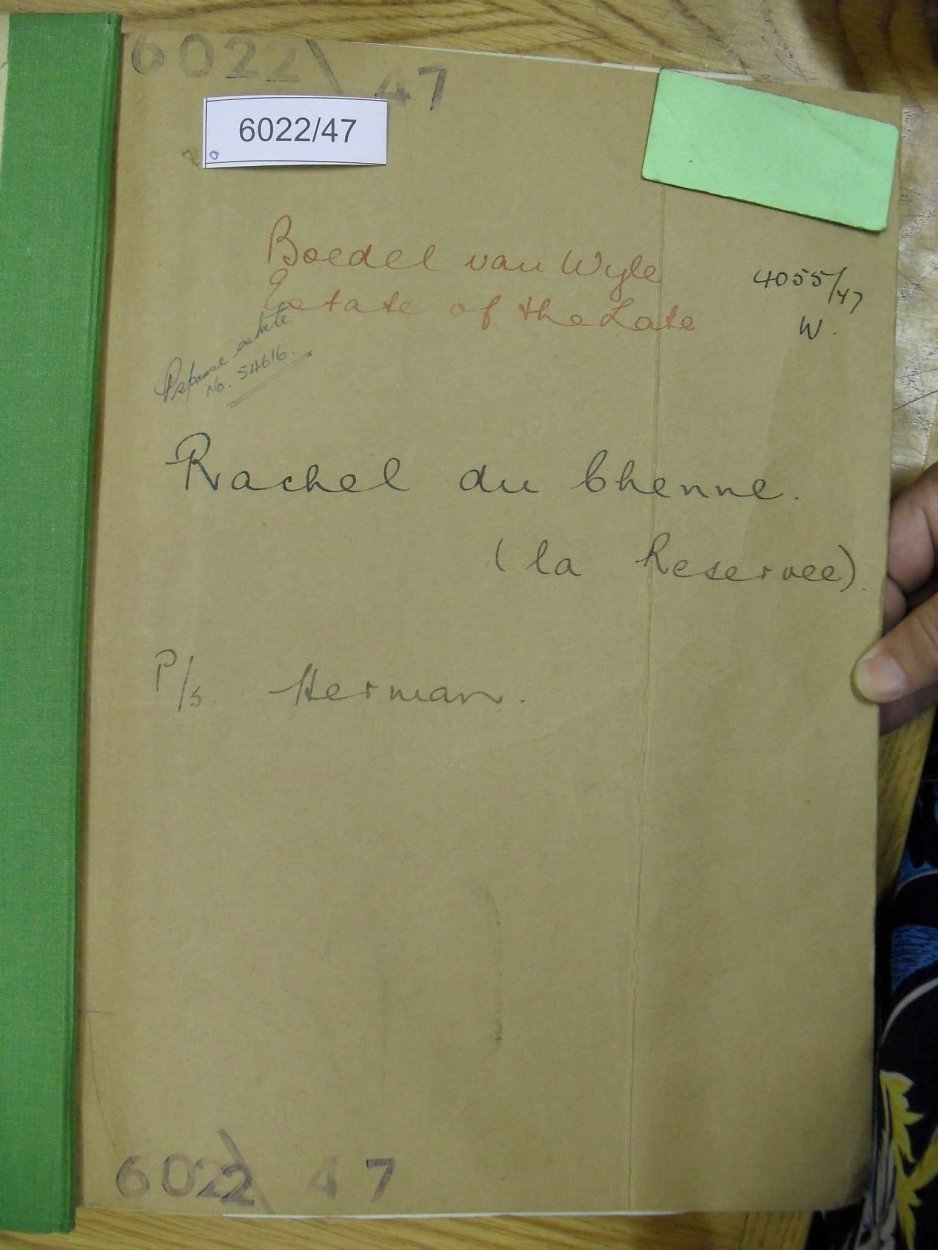 6022\ 47
6022/47
Boedel van Wyle
Estate of the Late
4055/47
W.
Pspouse estate
No. 54616.
Rachel du Chenne.
(la Reservee)
P/s. Herman.
6022\ 47